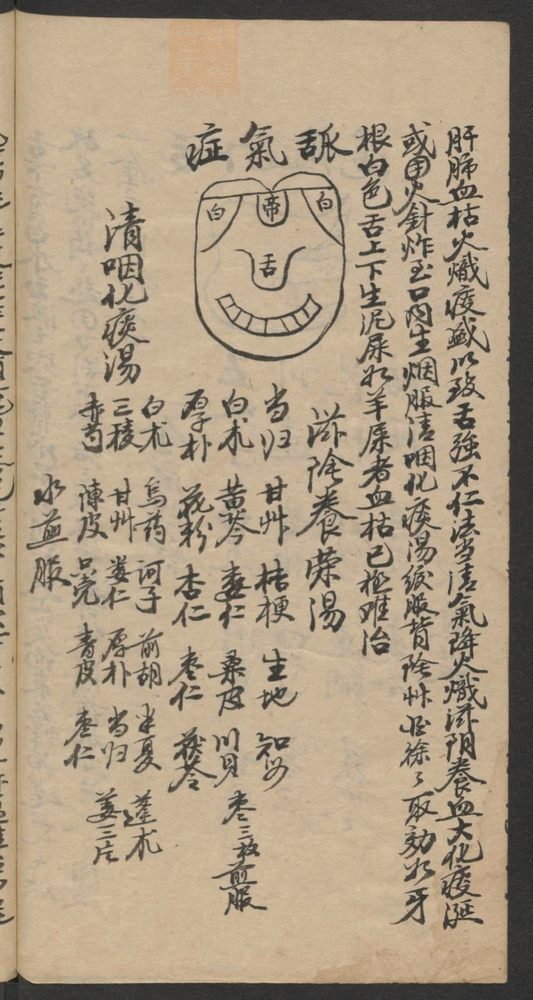 肝肺血枯火熾痰盛以致舌強不仁法當清氣降火熾滋阴養血大化痰涎
或用火針炸玉口内生烟服清咽化痰湯後服背陰艸 徐々取効如牙
根白色舌上下生泥屎如羊屎者血枯已極難治
舐氣症
白
帝
白
舌
滋陰養荣湯
当归 甘艸 桔梗 生地 知母
白朮 黄芩 蔞仁 桑皮 川贝 枣三枚煎服
厚朴 花粉 杏仁 枣仁 茯苓
清咽化痰湯
白朮 烏药 诃子 前胡 半夏 蓬朮
三稜 甘艸 蔞仁 厚朴 当归 姜三片
赤芍 陳皮 只壳 青皮 枣仁
水煎服